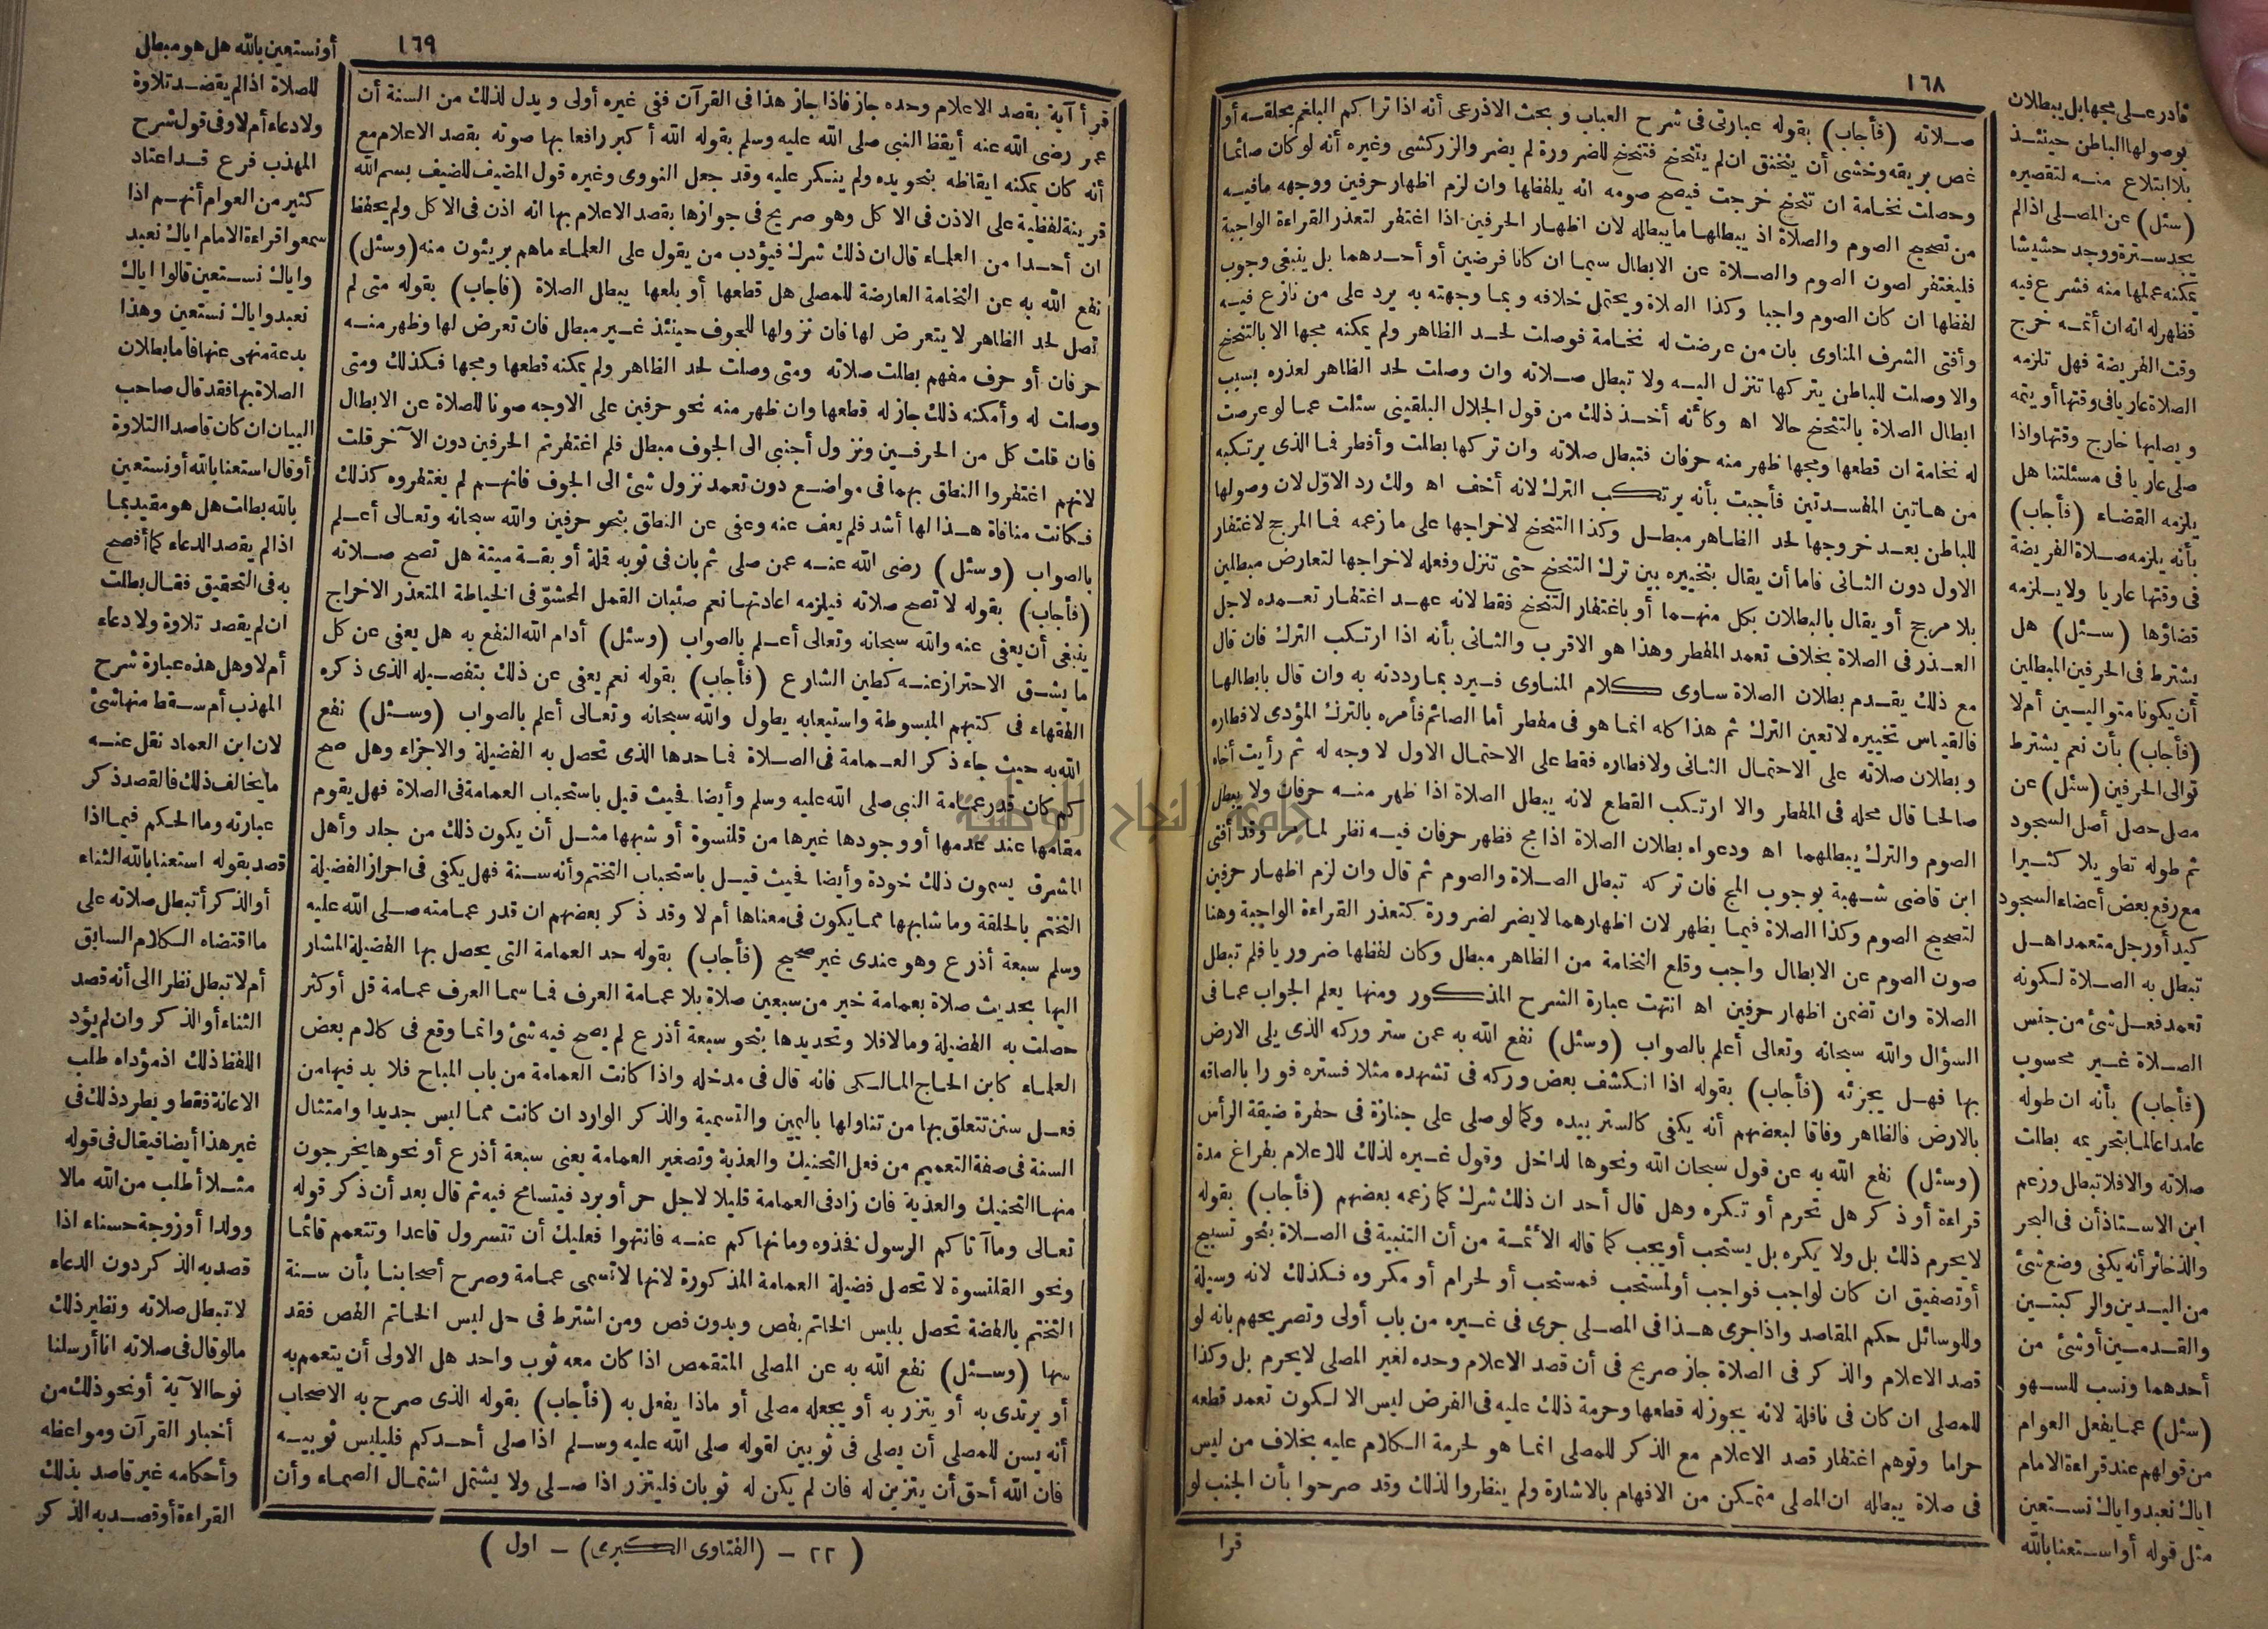 ١٦٨
صلاته (فأجاب) بقوله عبارتى فى شرح العباب وبحث الاذرعى أنه اذا تراكم البلغم بحلقه أو
غص بريقه وخشى أن يختنق ان لم يتنحنح فتنحنح للضرورة لم يضر والزركشى وغيره أنه لو كان صائما
وحصلت نخامة ان تنحنح خرجت فيصح صومه انه يلفظها وان لزم اظهار حرفين ووجهه مافيه
من تصحيح الصوم والصلاة اذ يبطلها ما يبطله لان اظهار الحرفين اذا اغتفر لتعذر القراءة الواجبة
فليغتفر لصون الصوم والصلاة عن الابطال سيما ان كانا فرضين أو أحدهما بل ينبغى وجوب
لفظها ان كان الصوم واجبا وكذا الصلاة ويحتمل خلافه وبما وجهته به يرد على من نازع فيه
وأفتى الشرف المناوى بان من عرضت له نخامة فوصلت لحد الظاهر ولم يمكنه مجها الا بالتنحنح
والا وصلت للباطن يتركها تنزل اليه ولا تبطل صلاته وان وصلت لحد الظاهر لعذره بسبب
ابطال الصلاة بالتنحنح حالا اه وكأنه أخذ ذلك من قول الجلال البلقينى سئلت عما لو عرضت
له نخامة ان قطعها ومجها ظهر منه حرفان فتبطل صلاته وان تركها بطلت وأفطر فما الذى يرتكبه
من هاتين المفسدتين فأجبت بأنه يرتكب الترك لانه أخف اه ولك رد الاول لان وصولها
للباطن بعد خروجها لحد الظاهر مبطل وكذا التنحنح لاخراجها على ما زعمه فما المرجح لاغتفار
الاول دون الثانى فاما أن يقال بتخييره بين ترك التنحنح حتى تنزل وفعله لاخراجها لتعارض مبطلين
بلا مرجح أو يقال بالبطلان بكل منهما أو باغتفار التنحنح فقط لانه عهد اغتفار تعمده لاجل
العذر فى الصلاة بخلاف تعمد المفطر وهذا هو الاقرب والثانى بأنه اذا ارتكب الترك فان قال
مع ذلك يقدم بطلان الصلاة ساوى كلام المناوى فيرد بما رددته به وان قال بابطالها
فالقياس تخييره لاتعين الترك ثم هذا كله انما هو فى مفطر أما الصائم فأمره بالترك المؤدى لافطاره
وبطلان صلاته على الاحتمال الثانى ولافطاره فقط على الاحتمال الاول لا وجه له ثم رأيت أخاه
صالحا قال محله فى المفطر والا ارتكب القطع لانه يبطل الصلاة اذا ظهر منه حرفان ولا يبطل
الصوم والترك يبطلهما اه ودعواه بطلان الصلاة اذا مج فظهر حرفان فيه نظر لما مر وقد أفتى
ابن قاضى شهبة بوجوب المج فان تركه تبطل الصلاة والصوم ثم قال وان لزم اظهار حرفين
لتصحيح الصوم وكذا الصلاة فيما يظهر لان اظهارهما لا يضر لضرورة كتعذر القراءة الواجبة وهنا
صون الصوم عن الابطال واجب وقلع النخامة من الظاهر مبطل وكان لفظها ضروريا فلم تبطل
الصلاة وان تضمن اظهار حرفين اه انتهت عبارة الشرح المذكور ومنها يعلم الجواب عما فى
السؤال والله سبحانه وتعالى أعلم بالصواب (وسئل) نفع الله به عمن ستر وركه الذى يلى الارض
بها فهل يجزئه (فأجاب) بقوله اذا انكشف بعض وركه فى تشهده مثلا فستره فورا بالصاقه
بالارض فالظاهر وفاقا لبعضهم أنه يكفى كالستر بيده وكما لو صلى على جنازة فى حفرة ضيقة الرأس
(وسئل) نفع الله به عن قول سبحان الله ونحوها لداخل وقول غيره لذلك للاعلام بفراغ مدة
قراءة أو ذكر هل تحرم أو تكره وهل قال أحد ان ذلك شرك كما زعمه بعضهم (فأجاب) بقوله
لا يحرم ذلك بل ولا يكره بل يستحب أو يجب كما قاله الأئمة من أن التنبيه فى الصلاة بنحو تسبيح
أو تصفيق ان كان لواجب فواجب أو لمستحب فمستحب أو لحرام أو مكروه فكذلك لانه وسيلة
وللوسائل حكم المقاصد واذا جرى هذا فى المصلى جرى فى غيره من باب أولى وتصريحهم بانه لو
قصد الاعلام والذكر فى الصلاة جاز صريح فى أن قصد الاعلام وحده لغير المصلى لا يحرم بل وكذا
للمصلى ان كان فى نافلة لانه يجوز له قطعها وحرمة ذلك عليه فى الفرض ليس الا لكون تعمد قطعه
حراما وتوهم اغتفار قصد الاعلام مع الذكر للمصلى انما هو لحرمة الكلام عليه بخلاف من ليس
فى صلاة يبطله ان المصلى متمكن من الافهام بالاشارة ولم ينظروا لذلك وقد صرحوا بأن الجنب لو
قرا
قادر على مجها بل يبطلان
بوصولها الباطن حينئذ
بلا ابتلاع منه لتقصيره
(سئل) عن المصلى اذا لم
يجد سترة ووجد حشيشا
يمكنه عملها منه فشرع فيه
فظهر له انه ان أتمه خرج
وقت الفريضة فهل تلزمه
الصلاة عاريا فى وقتها أو يتمه
ويصليها خارج وقتها واذا
صلى عاريا فى مسئلتنا هل
يلزمه القضاء (فأجاب)
بأنه يلزمه صلاة الفريضة
فى وقتها عاريا ولا يلزمه
قضاؤها (سئل) هل
يشترط فى الحرفين المبطلين
أن يكونا متواليين أم لا
(فأجاب) بأن نعم يشترط
توالى الحرفين (سئل) عن
مصل حصل أصل السجود
ثم طوله تطويلا كثيرا
مع رفع بعض أعضاء السجود
كيد أو رجل متعمدا هل
تبطل به الصلاة لكونه
تعمد فعل شئ من جنس
الصلاة غير محسوب
(فأجاب) بأنه ان طوله
عامدا عالما بتحريمه بطلت
صلاته والا فلا تبطل وزعم
ابن الاستاذ أن فى البحر
والذخائر أنه يكفى وضع شئ
من اليدين والركبتين
والقدمين أو شئ من
أحدهما ونسب للسهو
(سئل) عما يفعل العوام
من قولهم عند قراءة الامام
اياك نعبد واياك نستعين
مثل قوله أو استعنا بالله
١٦٩
قرأ آية بقصد الاعلام وحده جاز فاذا جاز هذا فى القرآن ففى غيره أولى ويدل لذلك من السنة أن
عمر رضى الله عنه أيقظ النبى صلى الله عليه وسلم بقوله الله أكبر رافعا بها صوته بقصد الاعلام مع
أنه كان يمكنه ايقاظه بنحو يده ولم ينكر عليه وقد جعل النووى وغيره قول المضيف للضيف بسم الله
قرينة لفظية على الاذن فى الاكل وهو صريح فى جوازها بقصد الاعلام بها انه اذن فى الاكل ولم يحفظ
ان أحدا من العلماء قال ان ذلك شرك فيؤدب من يقول على العلماء ماهم بريئون منه (وسئل)
نفع الله به عن النخامة العارضة للمصلى هل قطعها أو بلعها يبطل الصلاة (فأجاب) بقوله متى لم
تصل لحد الظاهر لا يتعرض لها فان نزولها للجوف حينئذ غير مبطل فان تعرض لها وظهر منه
حرفان أو حرف مفهم بطلت صلاته ومتى وصلت لحد الظاهر ولم يمكنه قطعها ومجها فكذلك ومتى
وصلت له وأمكنه ذلك جاز له قطعها وان ظهر منه نحو حرفين على الاوجه صونا للصلاة عن الابطال
فان قلت كل من الحرفين ونزول أجنبى الى الجوف مبطل فلم اغتفرتم الحرفين دون الآخر قلت
لانهم اغتفروا النطق بهما فى مواضع دون تعمد نزول شئ الى الجوف فانهم لم يغتفروه كذلك
فكانت منافاة هذا لها أشد فلم يعف عنه وعفى عن النطق بنحو حرفين والله سبحانه وتعالى أعلم
بالصواب (وسئل) رضى الله عنه عمن صلى ثم بان فى ثوبه قملة أو بقة ميتة هل تصح صلاته
(فأجاب) بقوله لا تصح صلاته فيلزمه اعادتها نعم صئبان القمل المحشو فى الخياطة المتعذر الاخراج
ينبغى أن يعفى عنه والله سبحانه وتعالى أعلم بالصواب (وسئل) أدام الله النفع به هل يعفى عن كل
ما يشق الاحتراز عنه كطين الشارع (فأجاب) بقوله نعم يعفى عن ذلك بتفصيله الذى ذكره
الفقهاء فى كتبهم المبسوطة واستيعابه يطول والله سبحانه وتعالى أعلم بالصواب (وسئل) نفع
الله به حيث جاء ذكر العمامة فى الصلاة فما حدها الذى تحصل به الفضيلة والاجزاء وهل صح
كم كان قدر عمامة النبى صلى الله عليه وسلم وأيضا فحيث قيل باستحباب العمامة فى الصلاة فهل يقوم
مقامها عند عدمها أو وجودها غيرها من قلنسوة أو شبهها مثل أن يكون ذلك من جلد وأهل
المشرق يسمون ذلك خودة وأيضا فحيث قيل باستحباب التختم وأنه سنة فهل يكفى فى احراز الفضيلة
التختم بالحلقة وما شابهها مما يكون فى معناها أم لا وقد ذكر بعضهم ان قدر عمامته صلى الله عليه
وسلم سبعة أذرع وهو عندى غير صحيح (فأجاب) بقوله حد العمامة التى يحصل بها الفضيلة المشار
اليها بحديث صلاة بعمامة خير من سبعين صلاة بلا عمامة العرف فما سماه العرف عمامة قل أو كثر
حصلت به الفضيلة وما لا فلا وتحديدها بنحو سبعة أذرع لم يصح فيه شئ وانما وقع فى كلام بعض
العلماء كابن الحاج المالكى فانه قال فى مدخله واذا كانت العمامة من باب المباح فلا بد فيها من
فعل سنن تتعلق بها من تناولها باليمين والتسمية والذكر الوارد ان كانت مما لبس جديدا وامتثال
السنة فى صفة التعميم من فعل التحنيك والعذبة وتصغير العمامة يعنى سبعة أذرع أو نحوها يخرجون
منها التحنيك والعذبة فان زاد فى العمامة قليلا لاجل حر أو برد فيتسامح فيه ثم قال بعد أن ذكر قوله
تعالى وما آتاكم الرسول فخذوه وما نهاكم عنه فانتهوا فعليك أن تتسرول قاعدا وتتعمم قائما
ونحو القلنسوة لا تحصل فضيلة العمامة المذكورة لانها لا تسمى عمامة وصرح أصحابنا بأن سنة
التختم بالفضة تحصل بلبس الخاتم بفص وبدون فص ومن اشترط فى حل لبس الخاتم الفص فقد
سها (وسئل) نفع الله به عن المصلى المتقمص اذا كان معه ثوب واحد هل الاولى أن يتعمم به
أو يرتدى به أو يتزر به أو يجعله مصلى أو ماذا يفعل به (فأجاب) بقوله الذى صرح به الاصحاب
أنه يسن للمصلى أن يصلى فى ثوبين لقوله صلى الله عليه وسلم اذا صلى أحدكم فليلبس ثوبيه
فان الله أحق أن يتزين له فان لم يكن له ثوبان فليتزر اذا صلى ولا يشتمل اشتمال الصماء وأن
(٢٢ - (الفتاوى الكبرى) - اول)
أو نستعين بالله هل هو مبطل
للصلاة اذا لم يقصد تلاوة
ولا دعاء أم لا وفى قول شرح
المهذب فرع قد اعتاد
كثير من العوام أنهم اذا
سمعوا قراءة الامام اياك نعبد
واياك نستعين قالوا اياك
نعبد واياك نستعين وهذا
بدعة منهى عنها فاما بطلان
الصلاة بها فقد قال صاحب
البيان ان كان قاصدا التلاوة
أو قال استعنا بالله أو نستعين
بالله بطلت هل هو مقيد بما
اذا لم يقصد الدعاء كما أفصح
به فى التحقيق فقال بطلت
ان لم يقصد تلاوة ولا دعاء
أم لا وهل هذه عبارة شرح
المهذب أم سقط منها شئ
لان ابن العماد نقل عنه
ما يخالف ذلك فالقصد ذكر
عبارته وما الحكم فيما اذا
قصد بقوله استعنا بالله الثناء
أو الذكر أتبطل صلاته على
ما اقتضاه الكلام السابق
أم لا تبطل نظرا الى أنه قصد
الثناء أو الذكر وان لم يؤد
اللفظ ذلك اذ مؤداه طلب
الاعانة فقط ويطرد ذلك فى
غير هذا أيضا فيقال فى قوله
مثلا أطلب من الله مالا
وولدا أو زوجة حسناء اذا
قصد به الذكر دون الدعاء
لا تبطل صلاته ونظير ذلك
مالو قال فى صلاته انا أرسلنا
نوحا الآية أو نحو ذلك من
أخبار القرآن ومواعظه
وأحكامه غير قاصد بذلك
القراءة أو قصد به الذكر
جامعة النجاح الوطنية